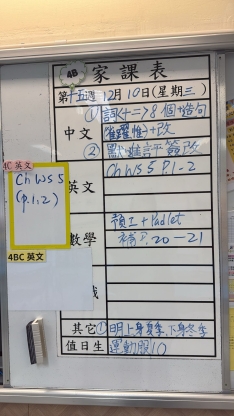 4B 家課表
第十五週12月10日(星期三)
①詞<十二>8個+造句
中文
+改
②默進評簽改
4C 英文
Ch WS 5
(p.1,2)
4BC 英文
英文
Ch WS 5 P.1-2
預工+Padlet
數學
補P.20-21
其它
①明上身夏季,下身冬季
值日生
運動服10